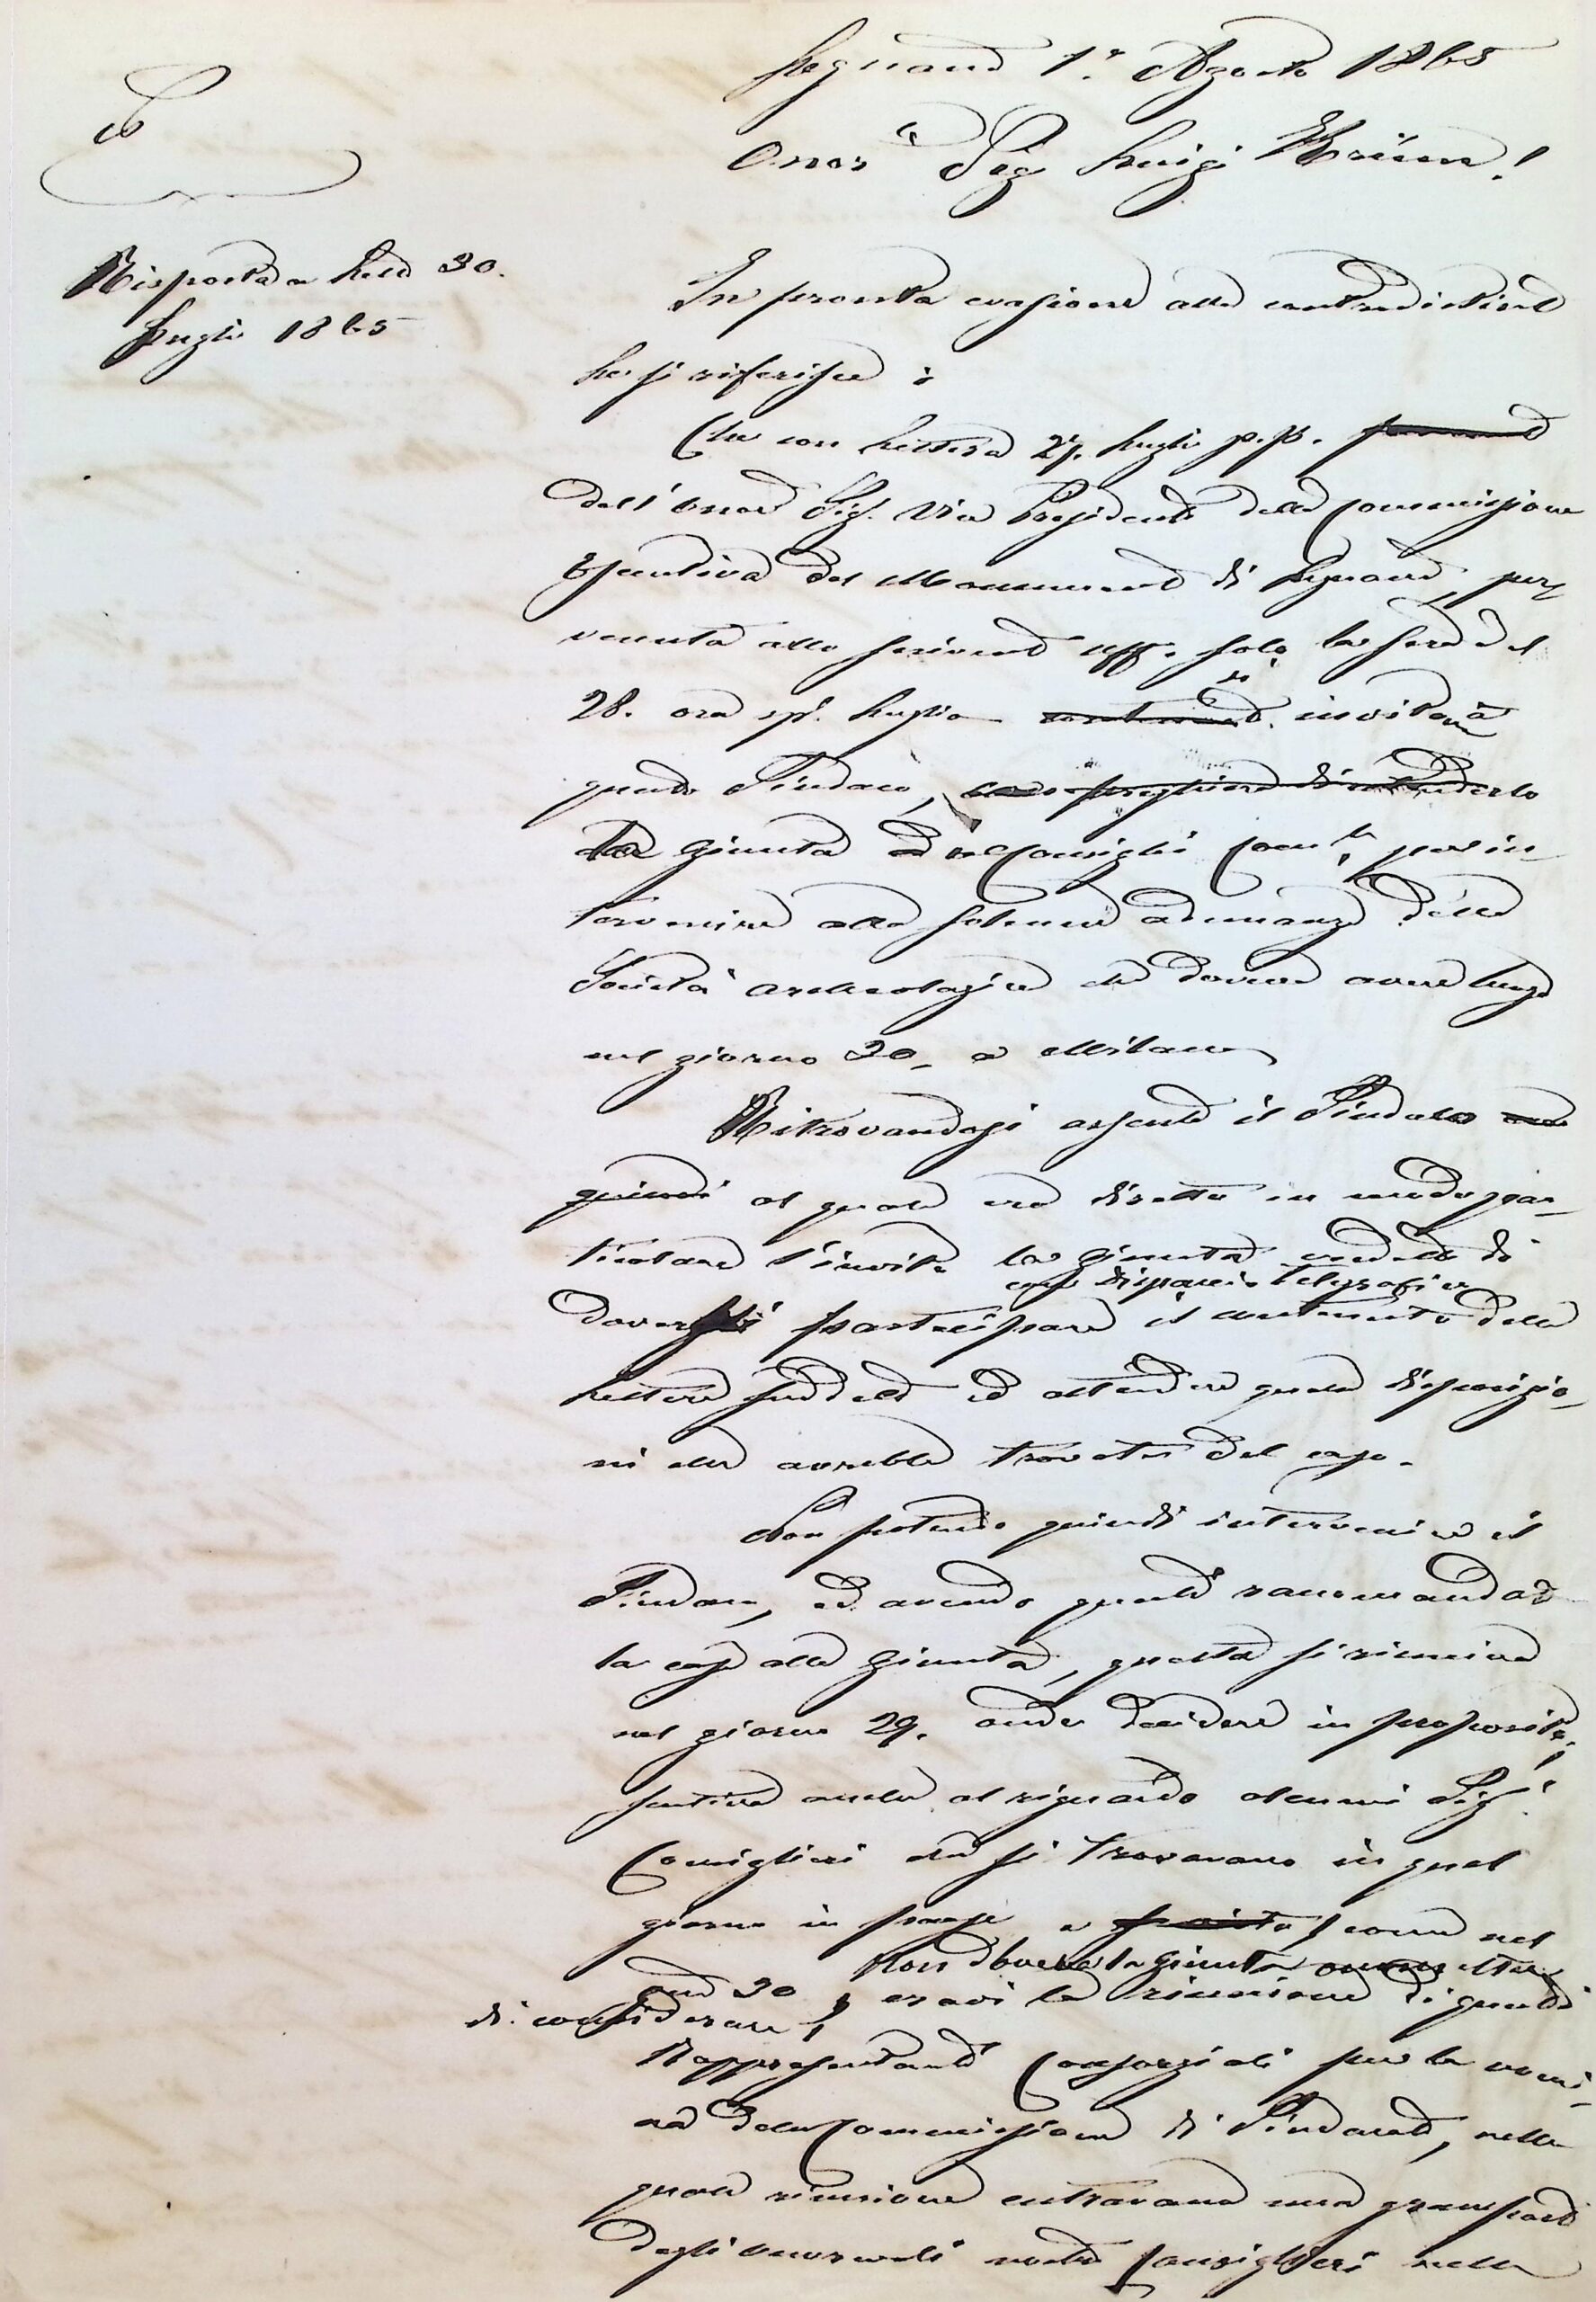 Legnano 1° Agosto 1865
Onor.e Sig Luigi Krüm!
Risposta a Lett.a 30.
Luglio 1865
In pronta evasione alla contradistinta
Le si riferisce:
Che con Lettera 27. Luglio p.p.
dell'onor.e Sig. Vice Presidente della Commissione
Esecutiva del Monumento di Legnano, per
venuta allo scrivente uff.o solo la sera del
28. ora sp.o Luglio si invitava
questo Sindaco,
la Giunta ed il Consiglio Com.le per in-
tervenire alla solenne adunanza della
Società Archeologica che doveva avere luogo
nel giorno 30, a Milano
Ritrovandosi assente il Sindaco
al quale era diretto in modo par-
ticolare l'invito la Giunta credette di
con dispaccio telegrafico
dovergli partecipare il contenuto della
Lettera suddetta ed attendere quelle disposizio-
ni che avrebbe trovato del caso.
Non potendo quindi intervenire il
Sindaco, ed avendo questi raccomandato
la cosa alla Giunta, questa si riuniva
nel giorno 29. onde decidere in proposito,
sentiva anche al riguardo alcuni Sig.i
Consiglieri che si trovavano in quel
giorno in paese e come nel
Non doveva la Giunta omettere
30 eravi la riunione di questi
di considerare,
Rappresentanti Consorziali per la nomi-
na della Commissione di Sindacato, nella
quale riunione entravano una gran parte
degli onorevoli nostri Consiglieri nella